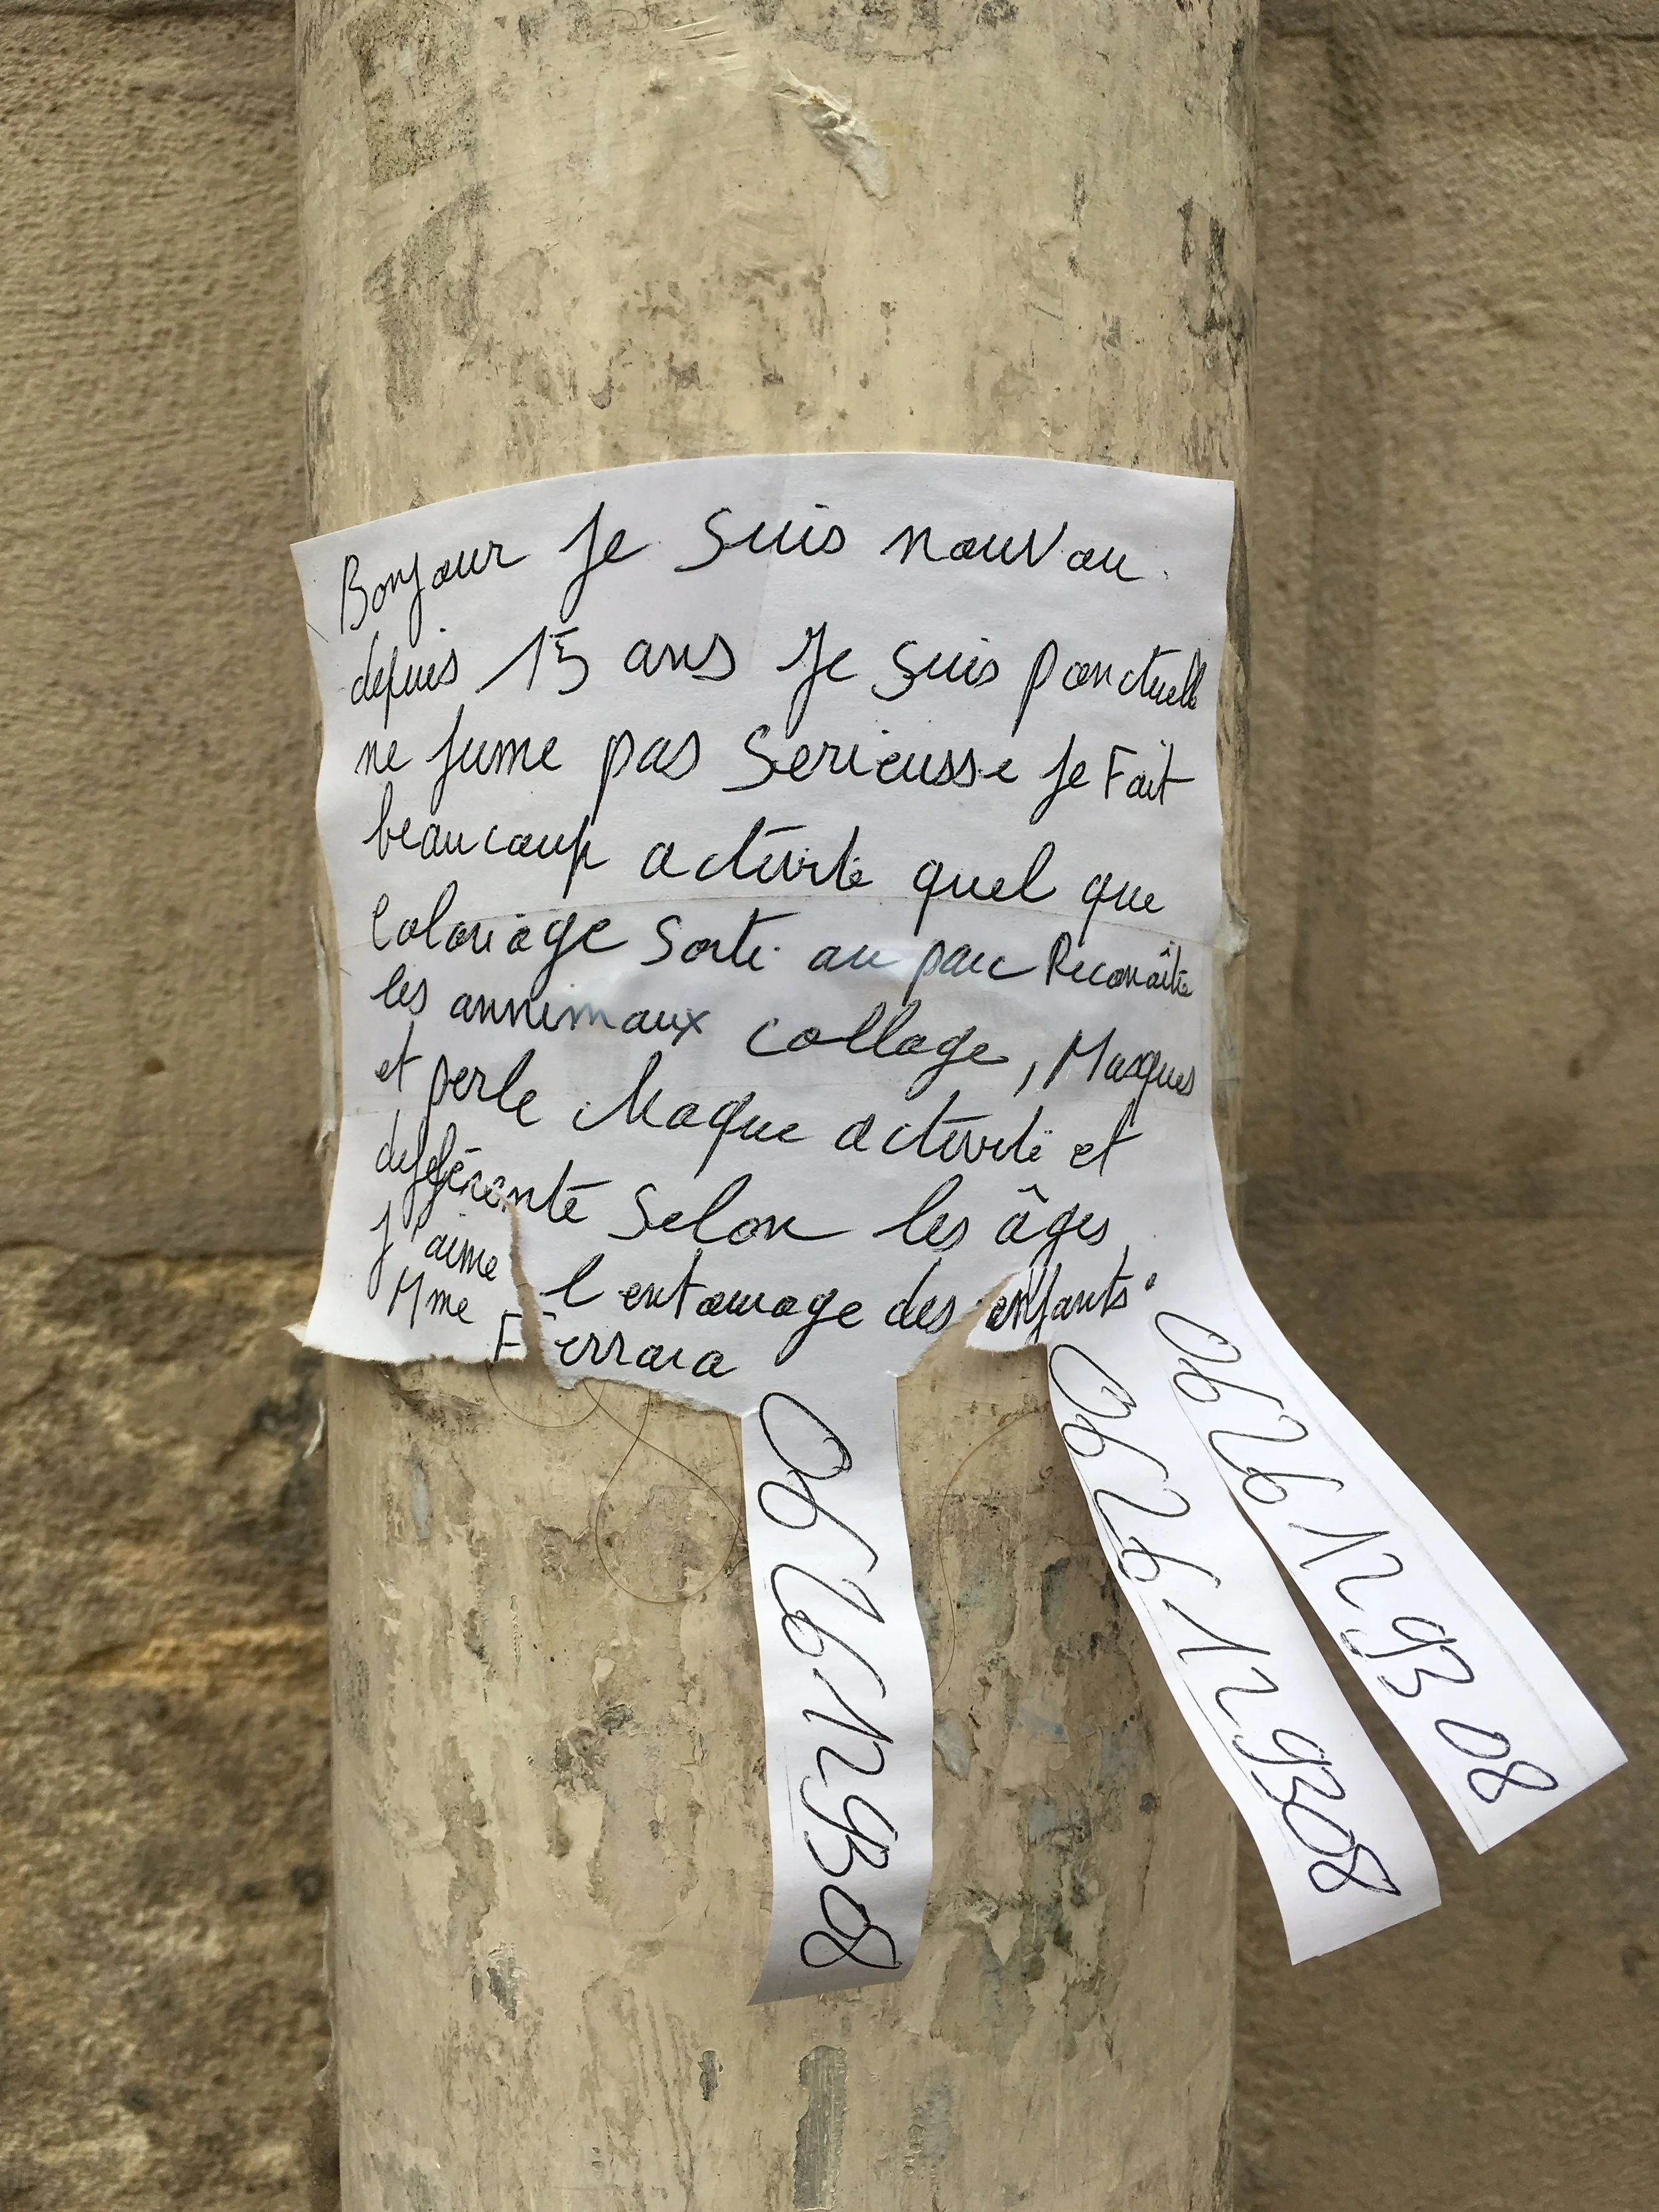 Bonjour Je suis nouvou
depuis 15 ans Je suis ponctuelle
ne fume pas Serieusse Je Fait
beaucoup activité quel que
Coloriage Sorti au parc Reconaître
les annimaux collage, Masques
et perle Chaque activité et
différente Selon les âges
J'aime l'entourage des enfants
Mme Ferrara
0626129308
0626129308
0626129308